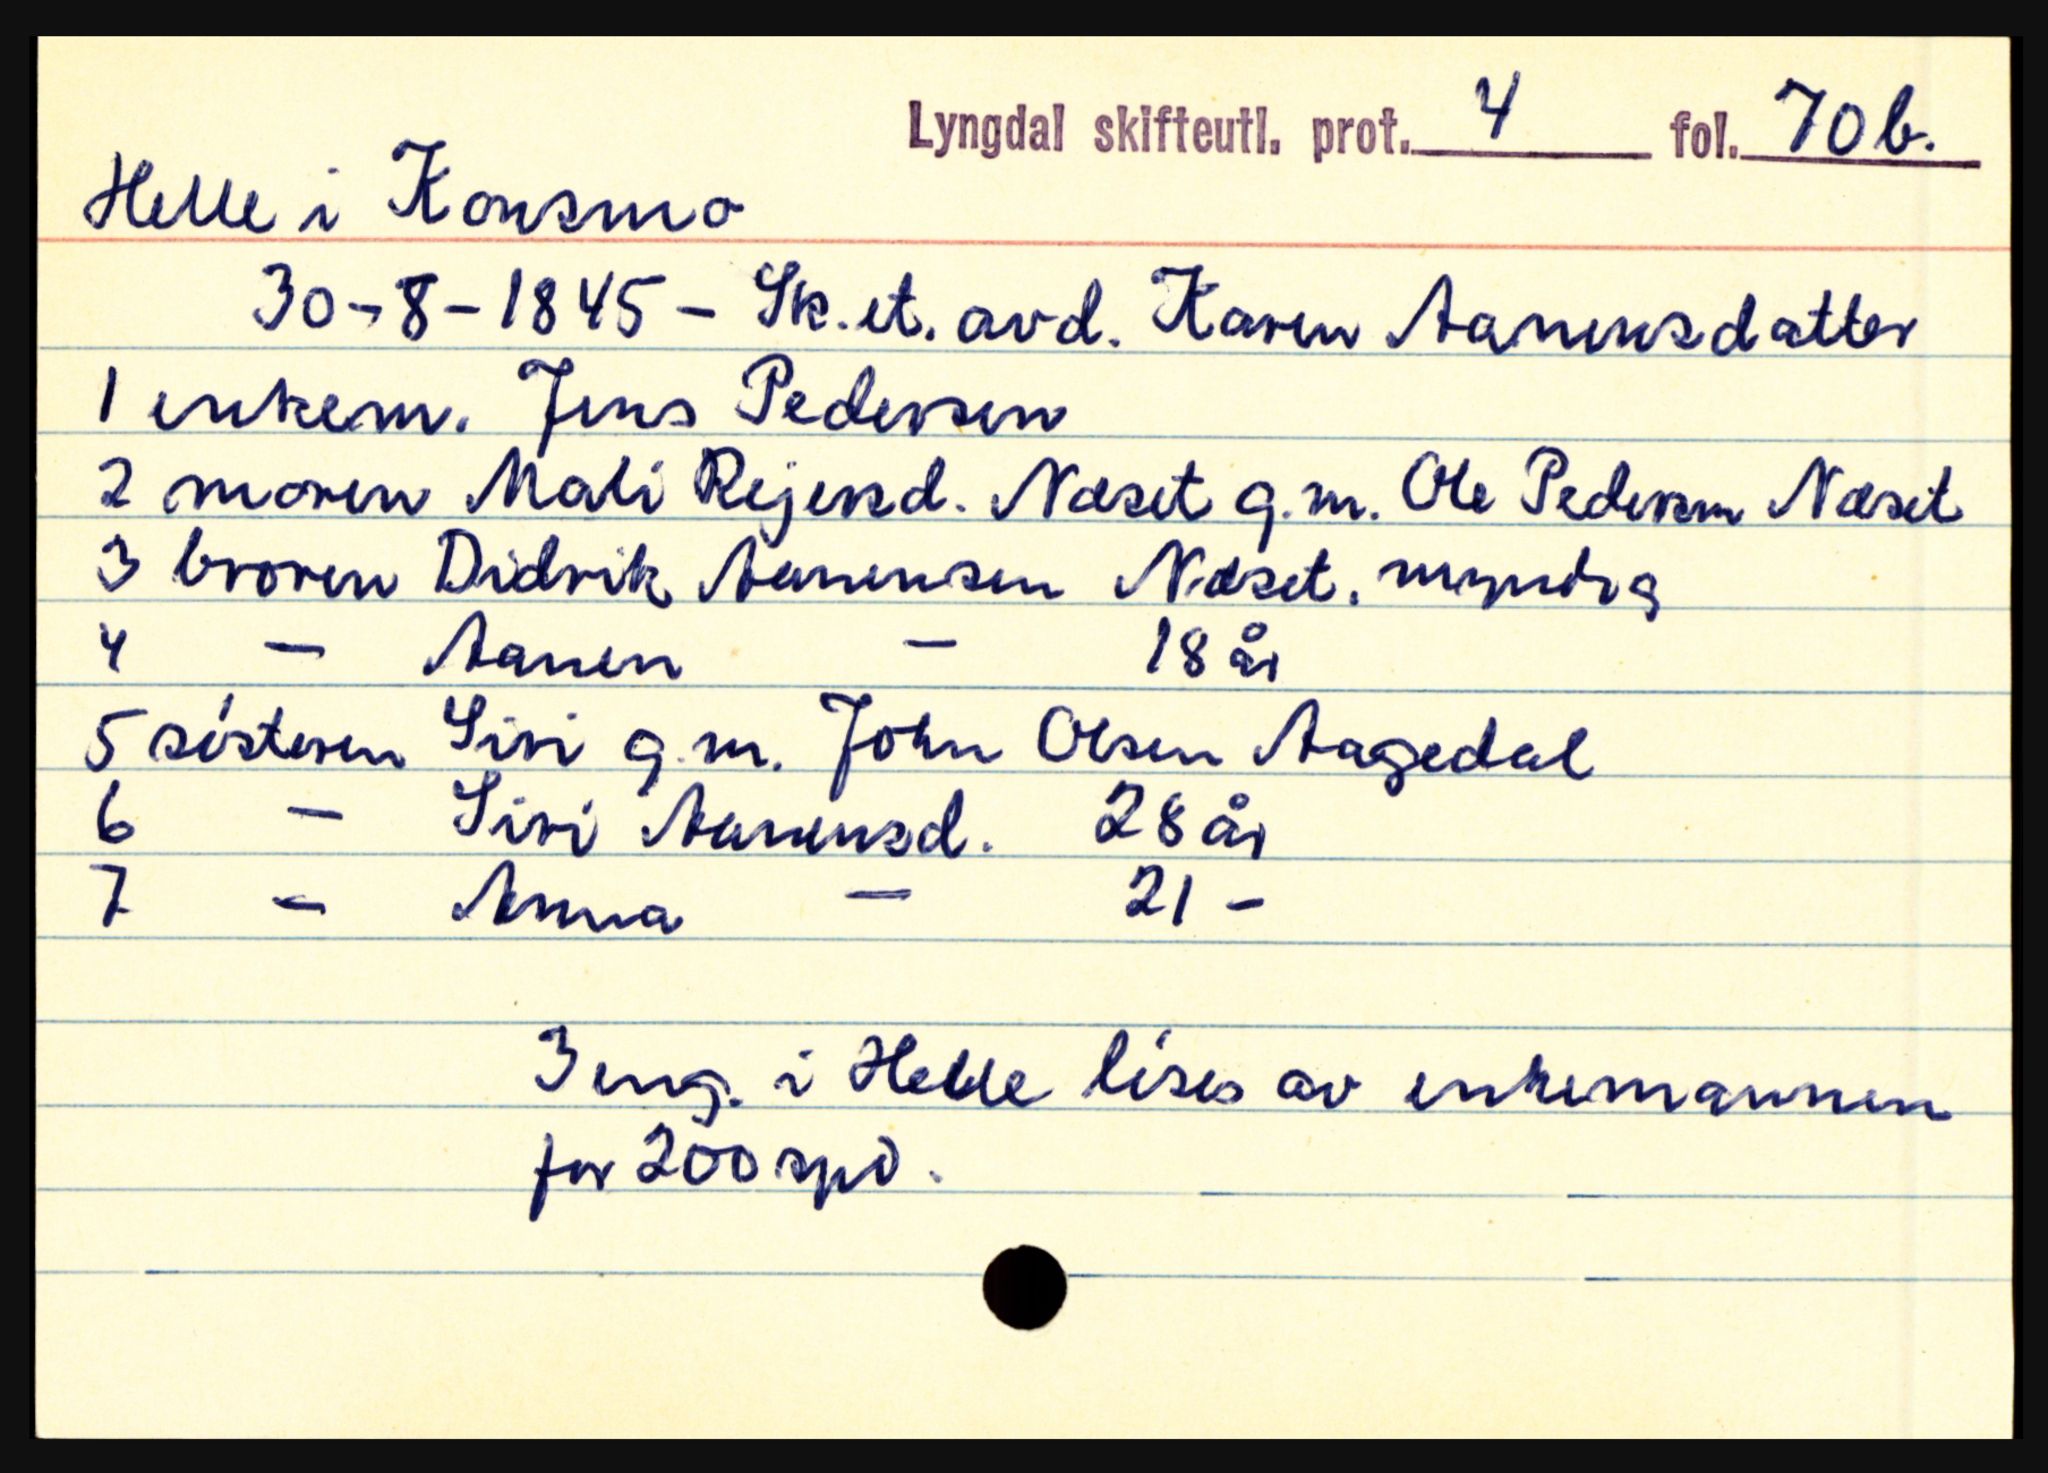 Lyngdal skifteutl. prot. 4 fol. 70b.
Helle i Konsmo
30-8-1845 - Sk. et. avd. Karen Aanensdatter
1 enkem. Jens Pedersen
2 moren Mali Rejersd. Næset g.m. Ole Pedersen Næset
3 broren Didrik Aanensen Næset. myndig
4 - Aanen - 18 år
5 sósteren Siri g.m. John Olsen Aagedal
6 - Siri Aanensd. 28 år
7 - Anna - 21 -
3 eng. i Helle lóses av enkemannen
for 200 spd.